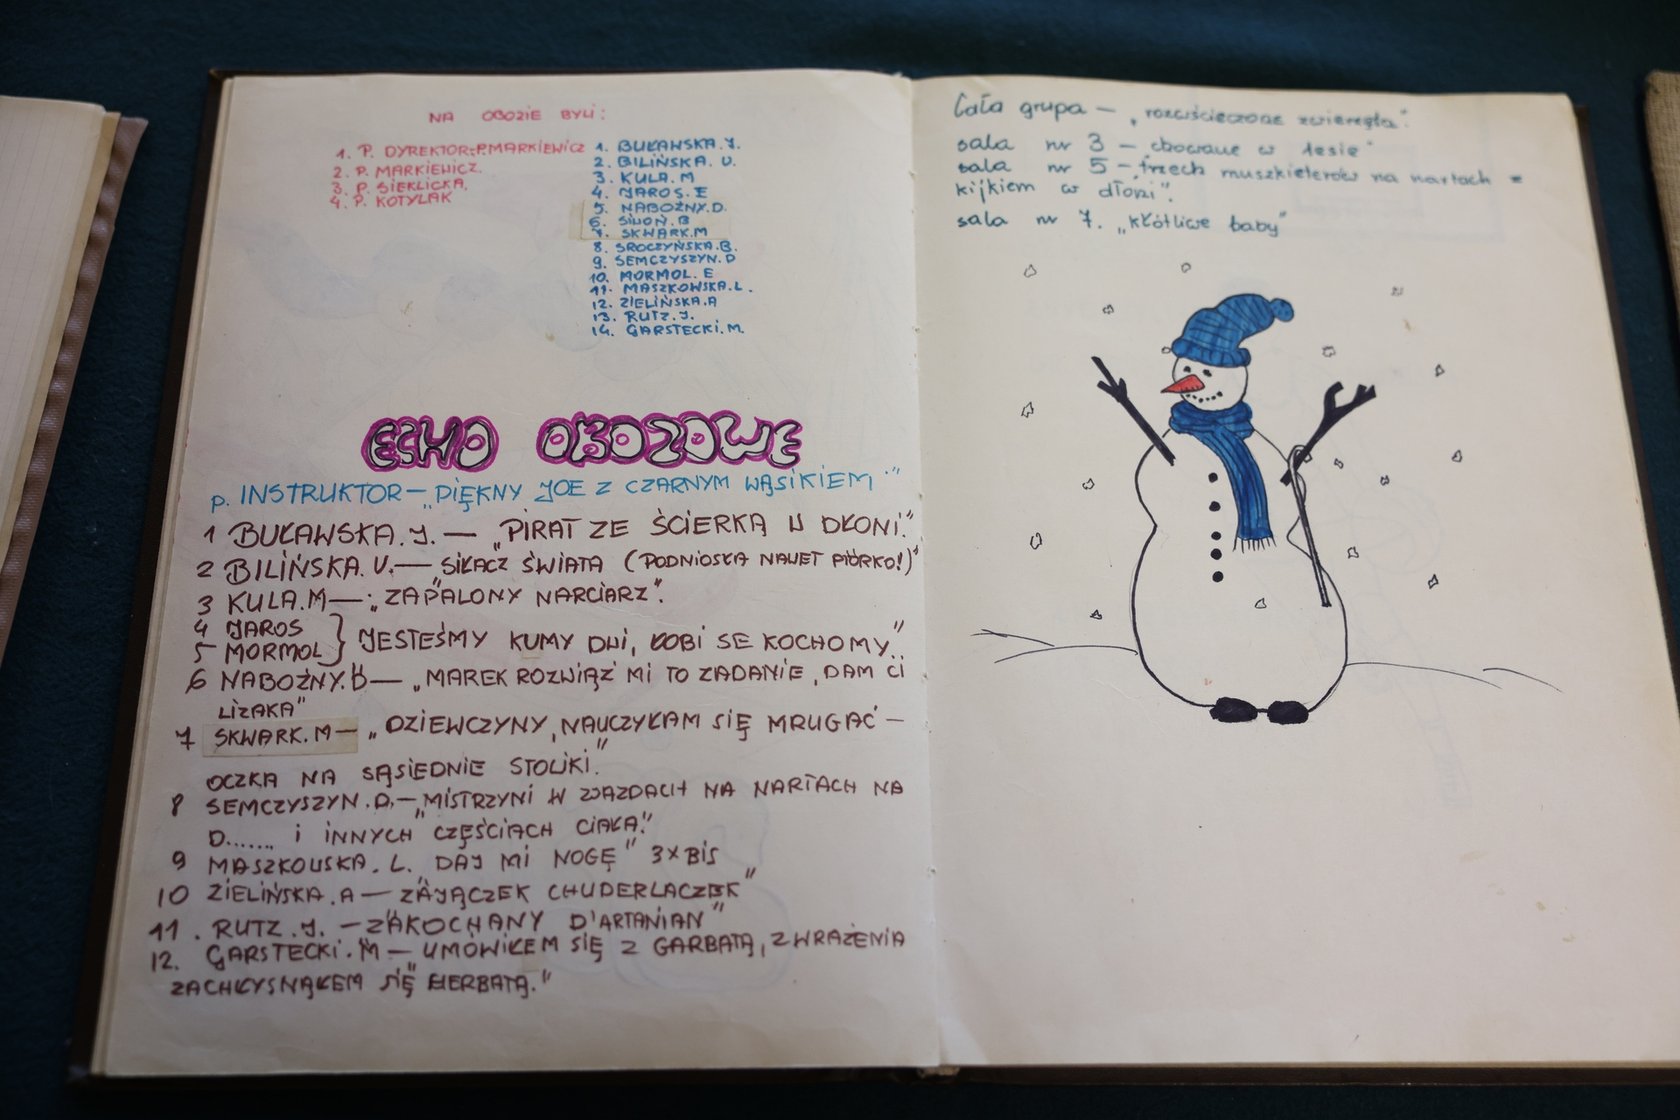 NA OBOZIE BYLI:
1. P. DYREKTOR-P.MARKIEWICZ
2. P. MARKIEWICZ.
3. P. SIEKLICKA.
4. P. KOTYLAK
1. BUŁAWSKA.J.
2. BILIŃSKA. U.
3. KULA. M
4. JAROS. E
5. NABOŻNY. D.
6. SIWOŃ. B
7. SKWARK.M
8. SROCZYŃSKA.B.
9. SEMCZYSZYN.D
10. MORMOL. E
11. MASZKOWSKA.L.
12. ZIELIŃSKA.A
13. RUTZ. J.
14. GARSTECKI. M.
ECHO OBOZOWE
p. INSTRUKTOR – „PIĘKNY JOE Z CZARNYM WĄSIKIEM"
1 BUŁAWSKA. J. — „PIRAT ZE ŚCIERKĄ W DŁONI."
2 BILIŃSKA. U. — SIŁACZ ŚWIATA (PODNIOSŁA NAWET PIÓRKO!)"
3 KULA.M — „ZAPALONY NARCIARZ".
4 JAROS
5 MORMOL } JESTEŚMY KUMY DWI, OOBI SE KOCHOMY"
6 NABOŻNY.D — „MAREK ROZWIĄŻ MI TO ZADANIE, DAM CI
LIZAKA"
7 SKWARK. M — „DZIEWCZYNY, NAUCZYŁAM SIĘ MRUGAĆ –
OCZKA NA SĄSIEDNIE STOLIKI."
8 SEMCZYSZYN.D. — „MISTRZYNI W ZJAZDACH NA NARTACH NA
D....... i INNYCH CZĘŚCIACH CIAŁA."
9 MASZKOWSKA. L. DAJ MI NOGĘ" 3 x BIS
10 ZIELIŃSKA.A — „ZAJĄCZEK CHUDERLACZEK"
11. RUTZ. J. – „ZAKOCHANY D'ARTANIAN"
12. GARSTECKI. M — „UMÓWIŁEM SIĘ Z GARBATĄ, Z WRAŻENIA
ZACHŁYSNĄŁEM SIĘ HERBATĄ."
Cała grupa – „rozwścieczone zwierzęta".
sala nr 3 – chowane w lesie"
sala nr 5 – „trzech muszkieterów na nartach z
kijkiem w dłoni".
sala nr 7. „kłótliwe baby"